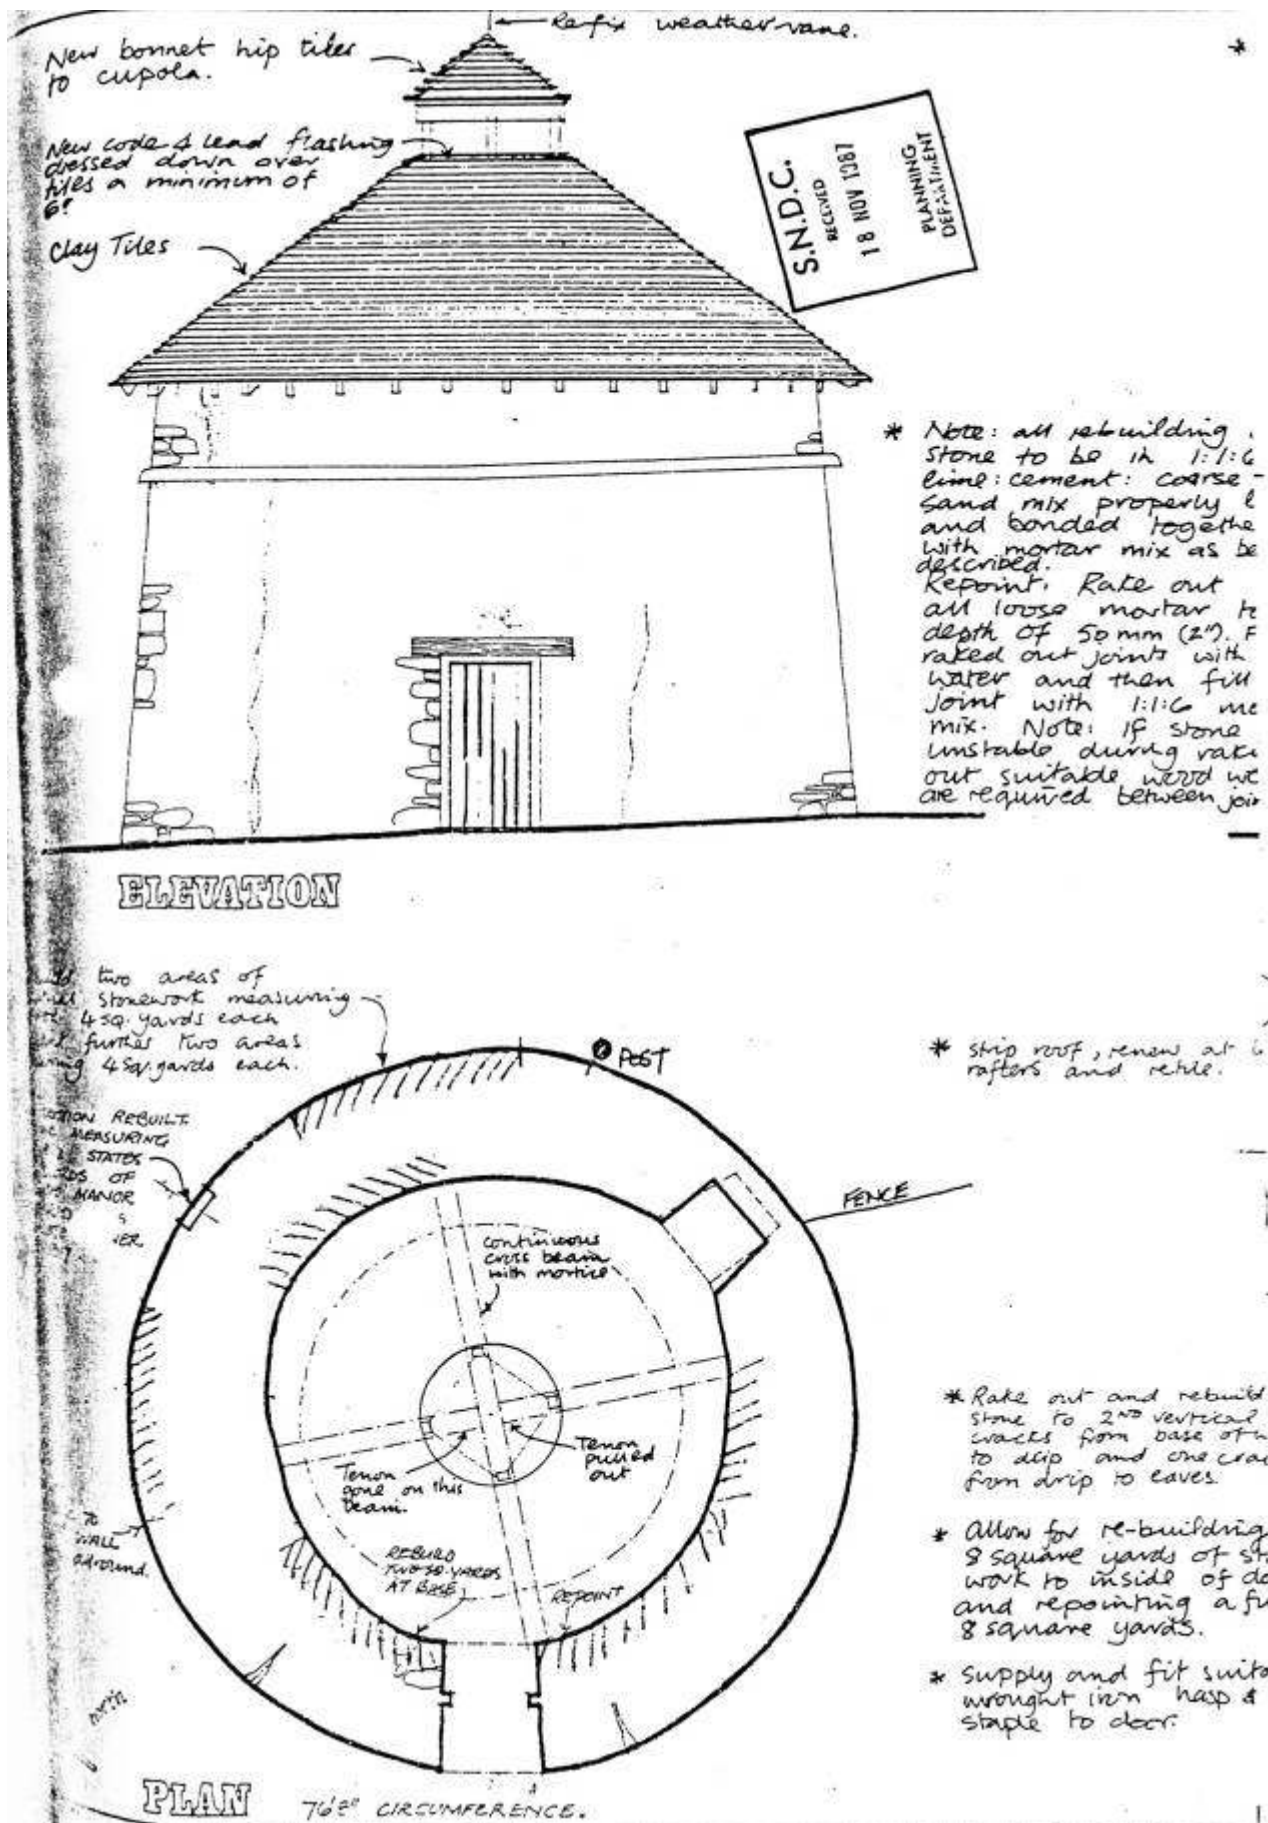 Refix weathervane.
New bonnet hip tiles
to cupola.
New code 4 lead flashing
dressed down over
tiles a minimum of
6"
Clay Tiles
S.N.D.C.
RECEIVED
18 NOV 1987
PLANNING
DEPARTMENT
* Note: all rebuilding
stone to be in 1:1:6
lime: cement: coarse -
sand mix properly
and bonded togethe
with mortar mix as be
described.
Repoint. Rake out
all loose mortar
depth of 50mm (2"). F
raked out joints with
water and then fill
joint with 1:1:6
mix. Note: if stone
unstable during rak
out suitable wood we
are required between joi
ELEVATION
two areas of
stonework measuring
4 sq. yards each
further two areas
4 sq. yards each.
* strip roof, renew at
rafters and retile.
POST
REBUILT.
MEASURING
STATES
OF
MANOR
FENCE
continuous
cross beam
with mortice
Tenon
pulled
out
Tenon
gone on this
beam.
* Rake out and rebuild
stone to 2ND vertical
cracks from base of
to drip and one crac
from drip to eaves.
WALL
allround.
REBUILD
TWO SQ. YARDS
AT BASE
REPOINT
* Allow for re-building
8 square yards of st
work to inside of do
and repointing a fu
8 square yards.
* Supply and fit suita
wrought iron hasp &
staple to door.
PLAN
CIRCUMFERENCE.